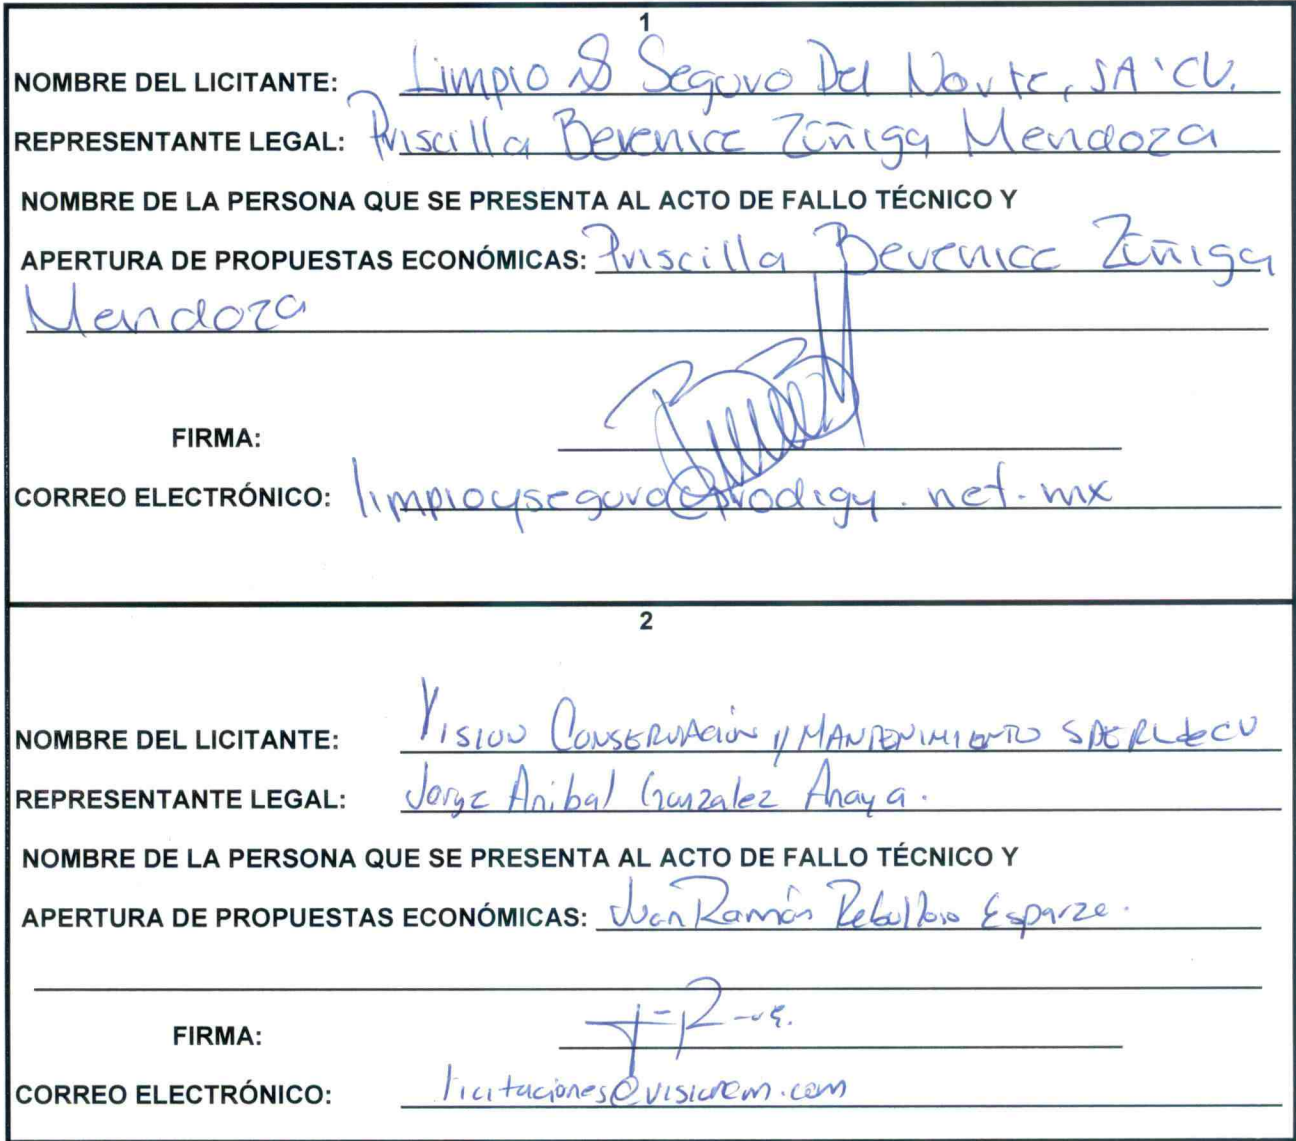 1
NOMBRE DEL LICITANTE: Limpio y Seguro Del Norte, SA CV.
REPRESENTANTE LEGAL: Priscilla Berenice Zúñiga Mendoza
NOMBRE DE LA PERSONA QUE SE PRESENTA AL ACTO DE FALLO TÉCNICO Y
APERTURA DE PROPUESTAS ECONÓMICAS: Priscilla Berenice Zúñiga
Mendoza
FIRMA:
CORREO ELECTRÓNICO: limpioyseguro@prodigy.net.mx
2
NOMBRE DEL LICITANTE: Vision Conservación y MANTENIMIENTO S DE RL de CV
REPRESENTANTE LEGAL: Jorge Anibal Gonzalez Anaya.
NOMBRE DE LA PERSONA QUE SE PRESENTA AL ACTO DE FALLO TÉCNICO Y
APERTURA DE PROPUESTAS ECONÓMICAS: Juan Ramón Rebolloso Esparza.
FIRMA:
CORREO ELECTRÓNICO: